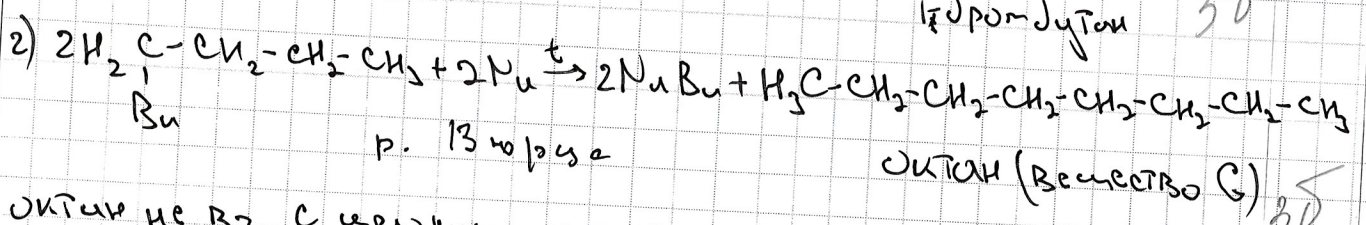 1бромбутан 30
2) 2H₂C-CH₂-CH₂-CH₃ + 2Na →ᵗ 2NaBr + H₃C-CH₂-CH₂-CH₂-CH₂-CH₂-CH₂-CH₃
Br
р. Вюрца
октан (вещество G) 3б
октан не вз. с